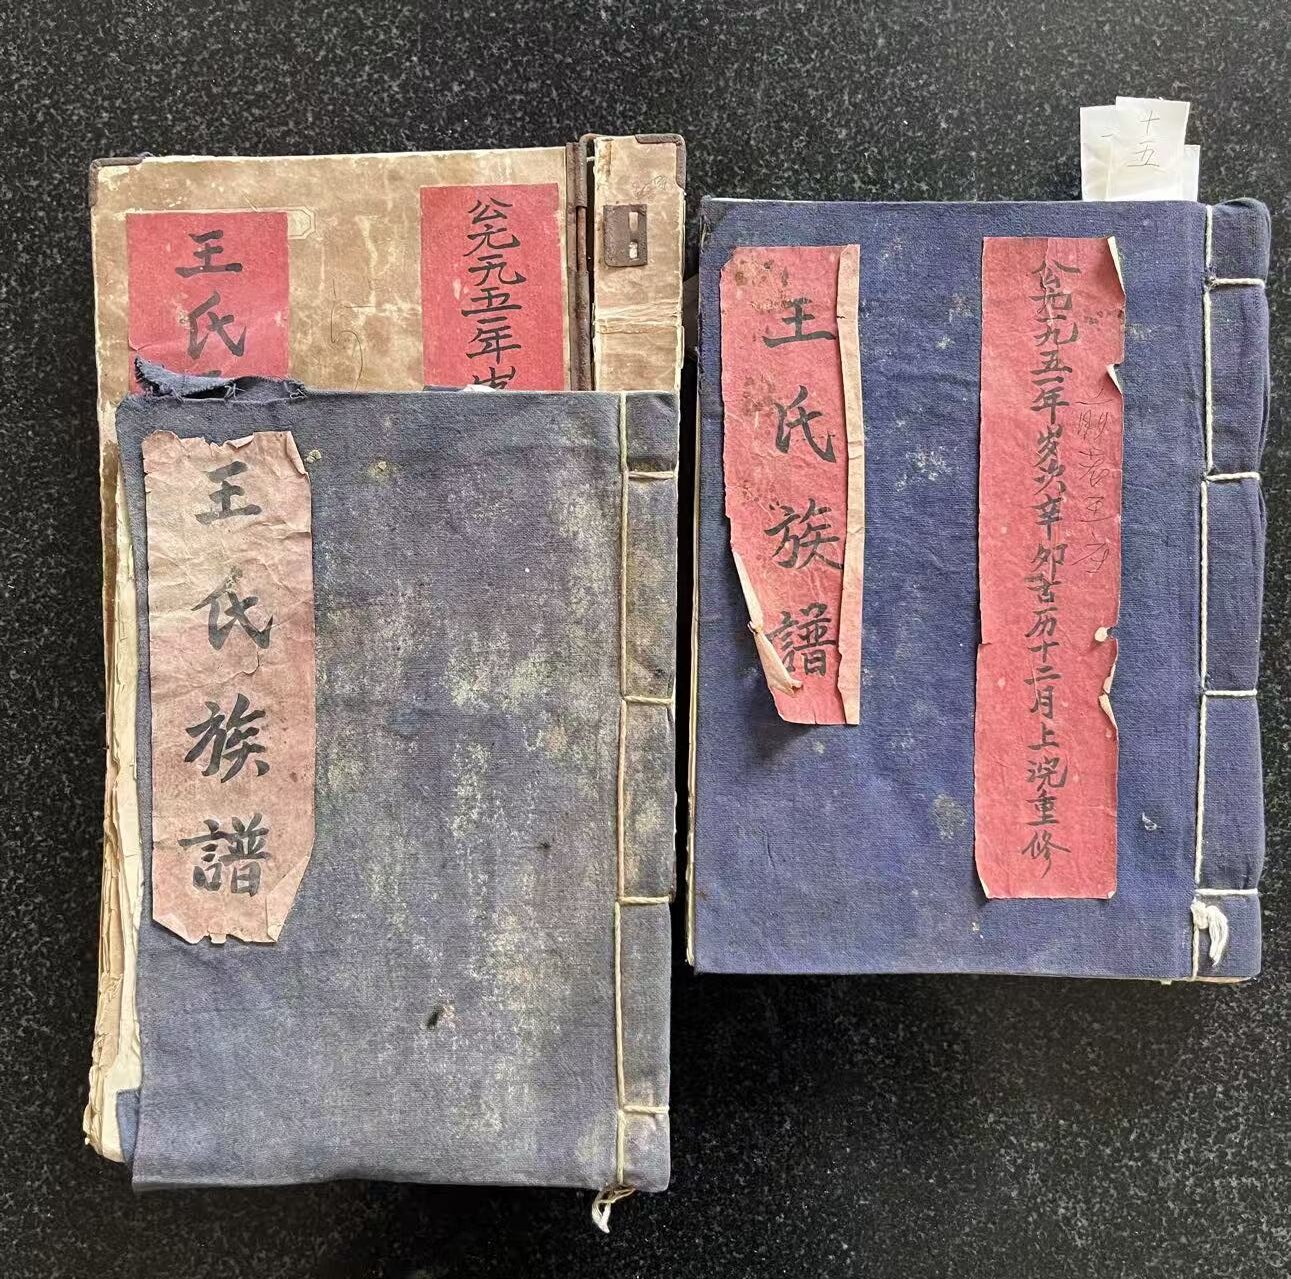 公元一九五一年岁
王氏
王氏族譜
十五
公元一九五一年岁次辛卯古历十二月上浣重修
王氏族譜